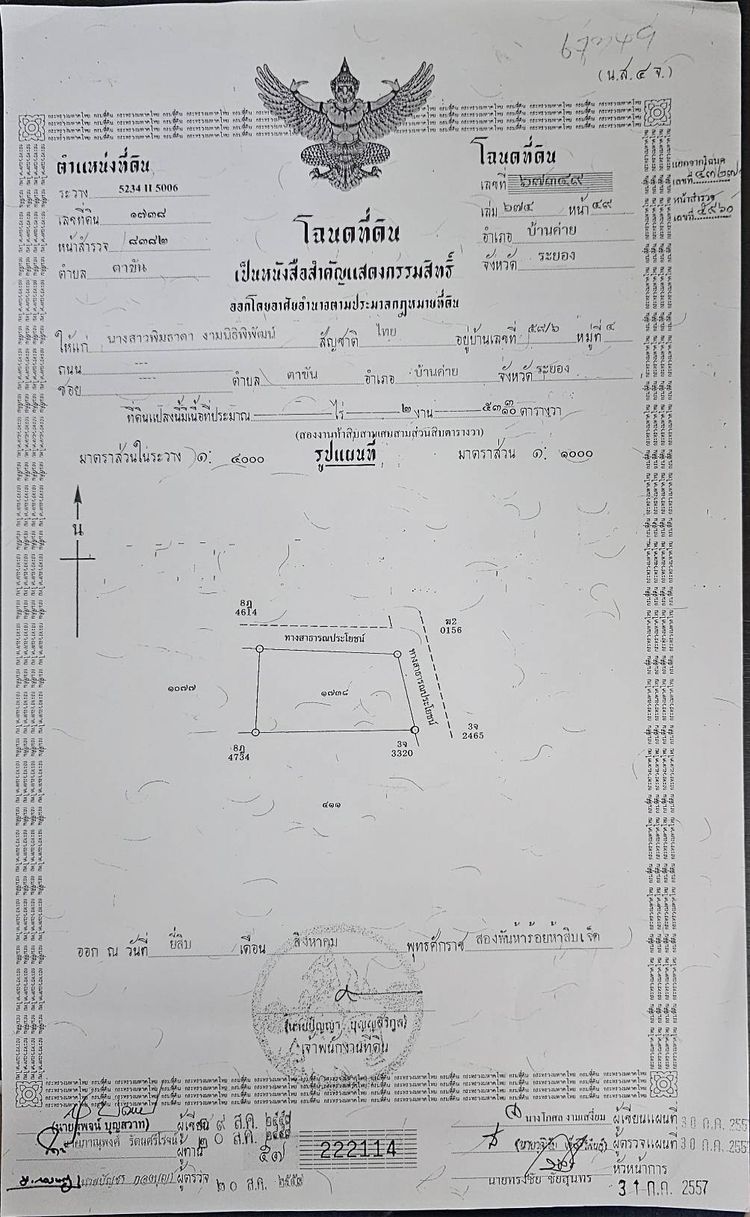 (น.ส.๔ จ.)
ตำแหน่งที่ดิน
ระวาง 5234 II 5006
เลขที่ดิน ๑๗๓๘
หน้าสำรวจ ๘๓๘๒
ตำบล ตาขัน
โฉนดที่ดิน
เลขที่ ๖๗๓๔๙
เล่ม ๖๗๔ หน้า ๔๙
อำเภอ บ้านค่าย
จังหวัด ระยอง
แยกจากโฉนด
เลขที่
หน้าสำรวจ
เลขที่ ๕๙๖๐
โฉนดที่ดิน
เป็นหนังสือสำคัญแสดงกรรมสิทธิ์
ออกโดยอาศัยอำนาจตามประมวลกฎหมายที่ดิน
ให้แก่ นางสาวพิมธาดา งามนิธิพิพัฒน์ สัญชาติ ไทย อยู่บ้านเลขที่ ๕๙/๖ หมู่ที่ ๔
ถนน --- ตำบล ตาขัน อำเภอ บ้านค่าย จังหวัด ระยอง
ซอย ---
ที่ดินแปลงนี้มีเนื้อที่ประมาณ ไร่ ๒ งาน ๕๓ ๓/๑๐ ตารางวา
(สองงานห้าสิบสามเศษสามส่วนสิบตารางวา)
มาตราส่วนในระวาง ๑: ๔๐๐๐ รูปแผนที่ มาตราส่วน ๑: ๑๐๐๐
น
8ฎ
4614
ฆ2
0156
ทางสาธารณประโยชน์
ทางสาธารณประโยชน์
๑๐๗๗
๑๗๓๘
8ฎ
4734
3จ
3320
3จ
2465
๔๑๑
ออก ณ วันที่ ยี่สิบ เดือน สิงหาคม พุทธศักราช สองพันห้าร้อยห้าสิบเจ็ด
เจ้าพนักงานที่ดิน
ผู้เขียน ๑๙ ส.ค. ๒๕๕๗
นายภาณุพงศ์ รัตนตรีโรจน์ ผู้ทาน ๒๐ ส.ค. ๒๕๕๗
ผู้ตรวจ ๒๐ ส.ค. ๒๕๕๗
๕๗
222114
นางโกศล งามเสงี่ยม ผู้เขียนแผนที่ 30 ก.ค. 2557
ผู้ตรวจแผนที่ 30 ก.ค. 2557
หัวหน้าการ
นายทรงชัย ชัยสุนทร 31 ก.ค. 2557